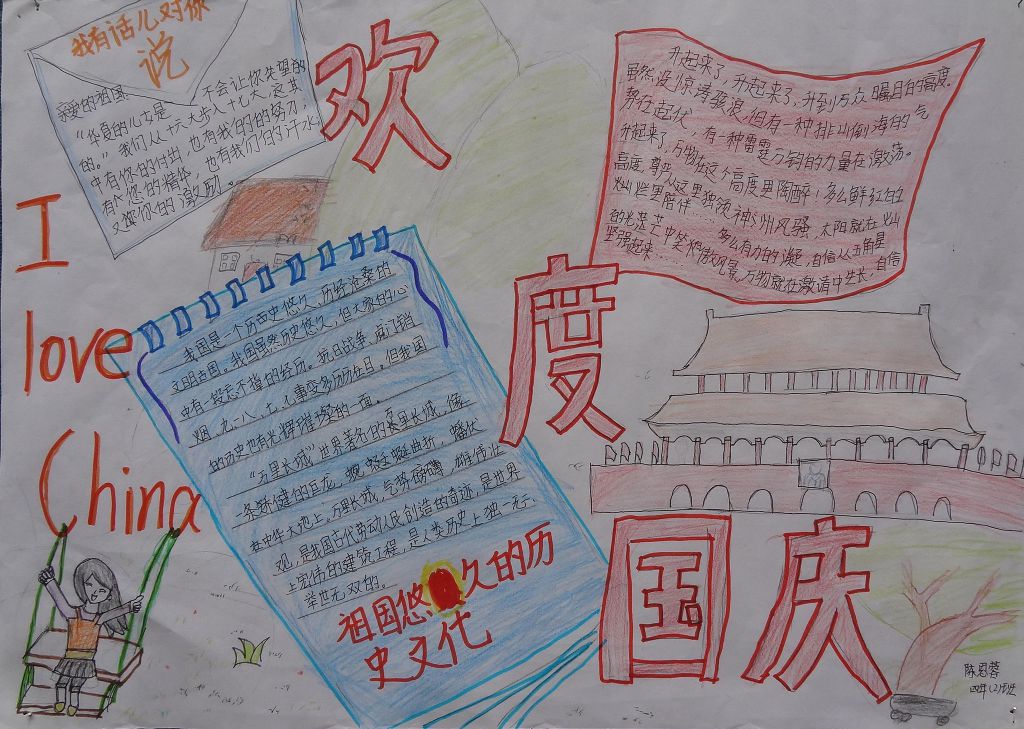 我有话儿对你
说
亲爱的祖国
不会让你失望的
"华夏的儿女是
的。"我们从十六大步入十七大,
中有你的付出,也有我们的努力,
有您的精华,也有我们的汗水,
又您你的激励。
欢
度
国
庆
I
love
China
升起来了,升起来了,升到万众瞩目的高度.
虽然没惊涛骇浪,但有一种排山倒海的气
势在起伏,有一种雷霆万钧的力量在激荡。
升起来了,万物在这个高度里陶醉!多么鲜红的
高度,尊严从这里独领神州风骚,太阳就在灿
灿烂里陪伴……多么有力的凝,自信从五角星
的光芒中笑傲风景,万物就在激请中生长,自信
坚强起来……
我国是一个历西史悠久、历经沧桑的
文明古国。我国虽然历史悠久,但大家的心
中有一段忘不掉的经历。抗日战争、虎门销
烟、九·八、七·七事变多历历在目。但我国
的历史也有光辉璀璨的一面。
"万里长城"世界著名的万里长城,像
一条矫健的巨龙,蜿蜒曲折,
在中华大地上。万里长城,气势磅礴,雄伟壮
观,是我国古代劳动人民创造的奇迹,是世界
上宏伟的建筑工程,是人类历史上独一无
举世无双的。
祖国悠久的历
史文化
陈恩蓉
四年(2)班